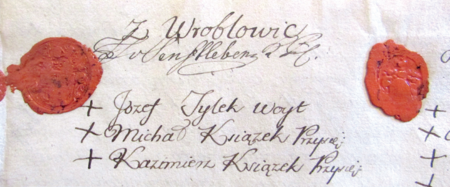 Z Wroblowic
+ Jozef Tylek Woyt
+ Michał Książek Przysięż
+ Kazimierz Książek Przysięż